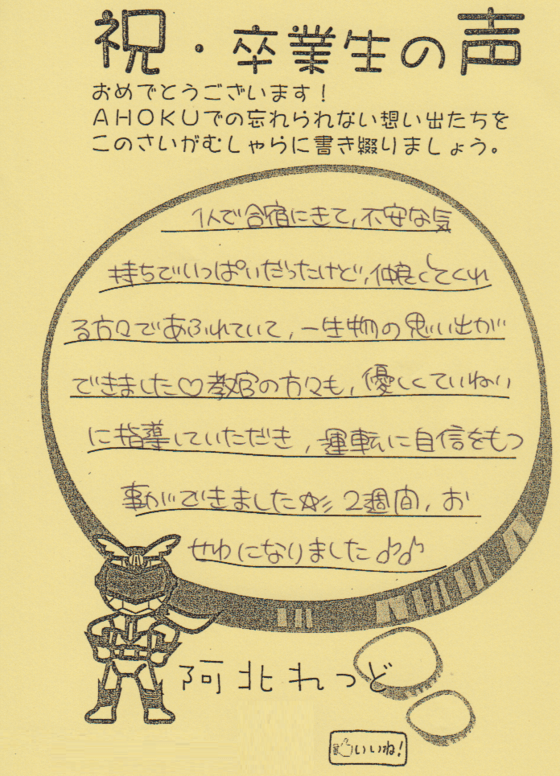 祝・卒業生の声
おめでとうございます！
AHOKUでの忘れられない想い出たちを
このさいがむしゃらに書き綴りましょう。
1人で合宿にきて、不安な気
持ちでいっぱいだったけど、仲良くしてくれ
る方々であふれていて、一生物の思い出が
できました♡教官の方々も、優しくていねい
に指導していただき、運転に自信をもつ
事ができました☆彡2週間、お
せわになりました♪♪
阿北れっど
いいね！